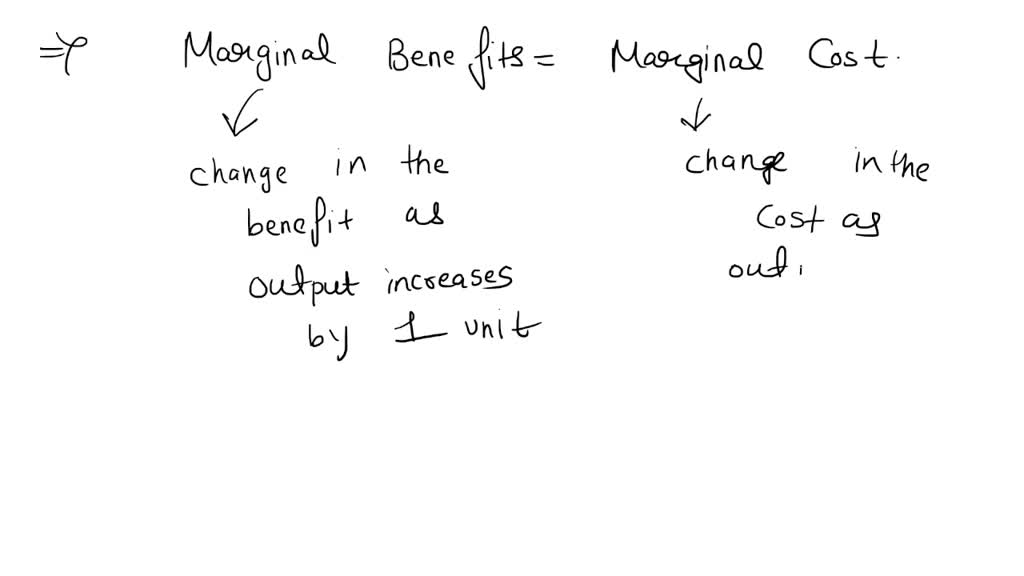 ⇒ Marginal Benefits = Marginal Cost.
change in the
benefit as
output increases
by 1 unit
change in the
Cost as
out